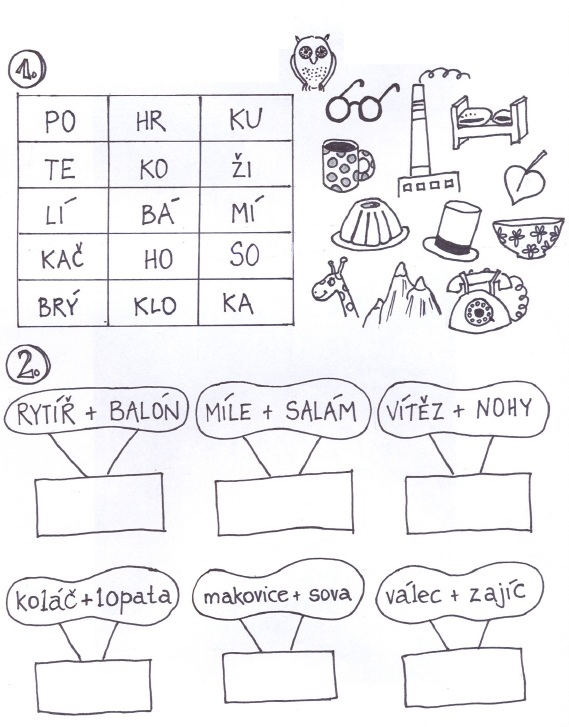 1.
PO HR KU
TE KO ŽI
LÍ BÁ MÍ
KAČ HO SO
BRÝ KLO KA
2.
RYTÍŘ + BALÓN MÍLE + SALÁM VÍTĚZ + NOHY
koláč + lopata makovice + sova válec + zajíc